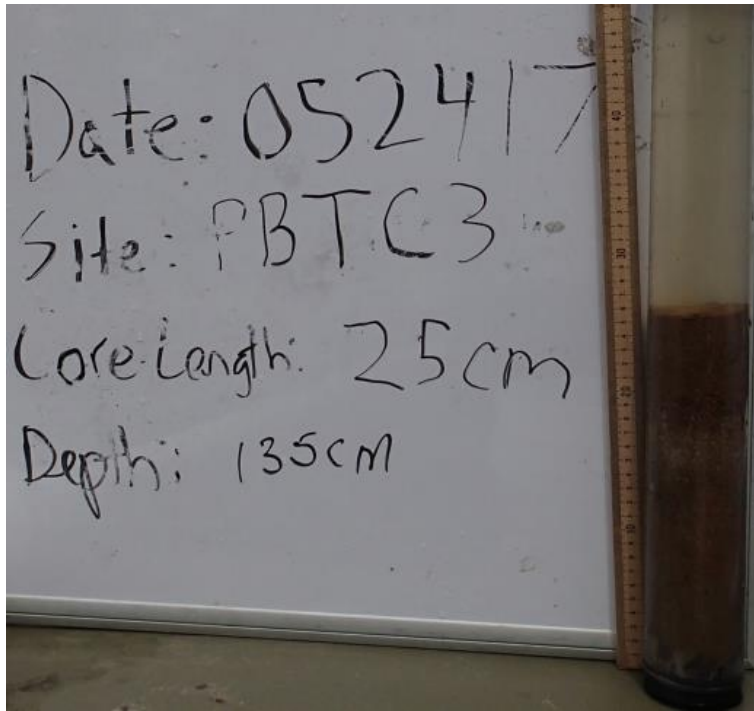 Date: 052417
Site: PBTC3
Core Length: 25cm
Depth: 135cm
40
30
20
10